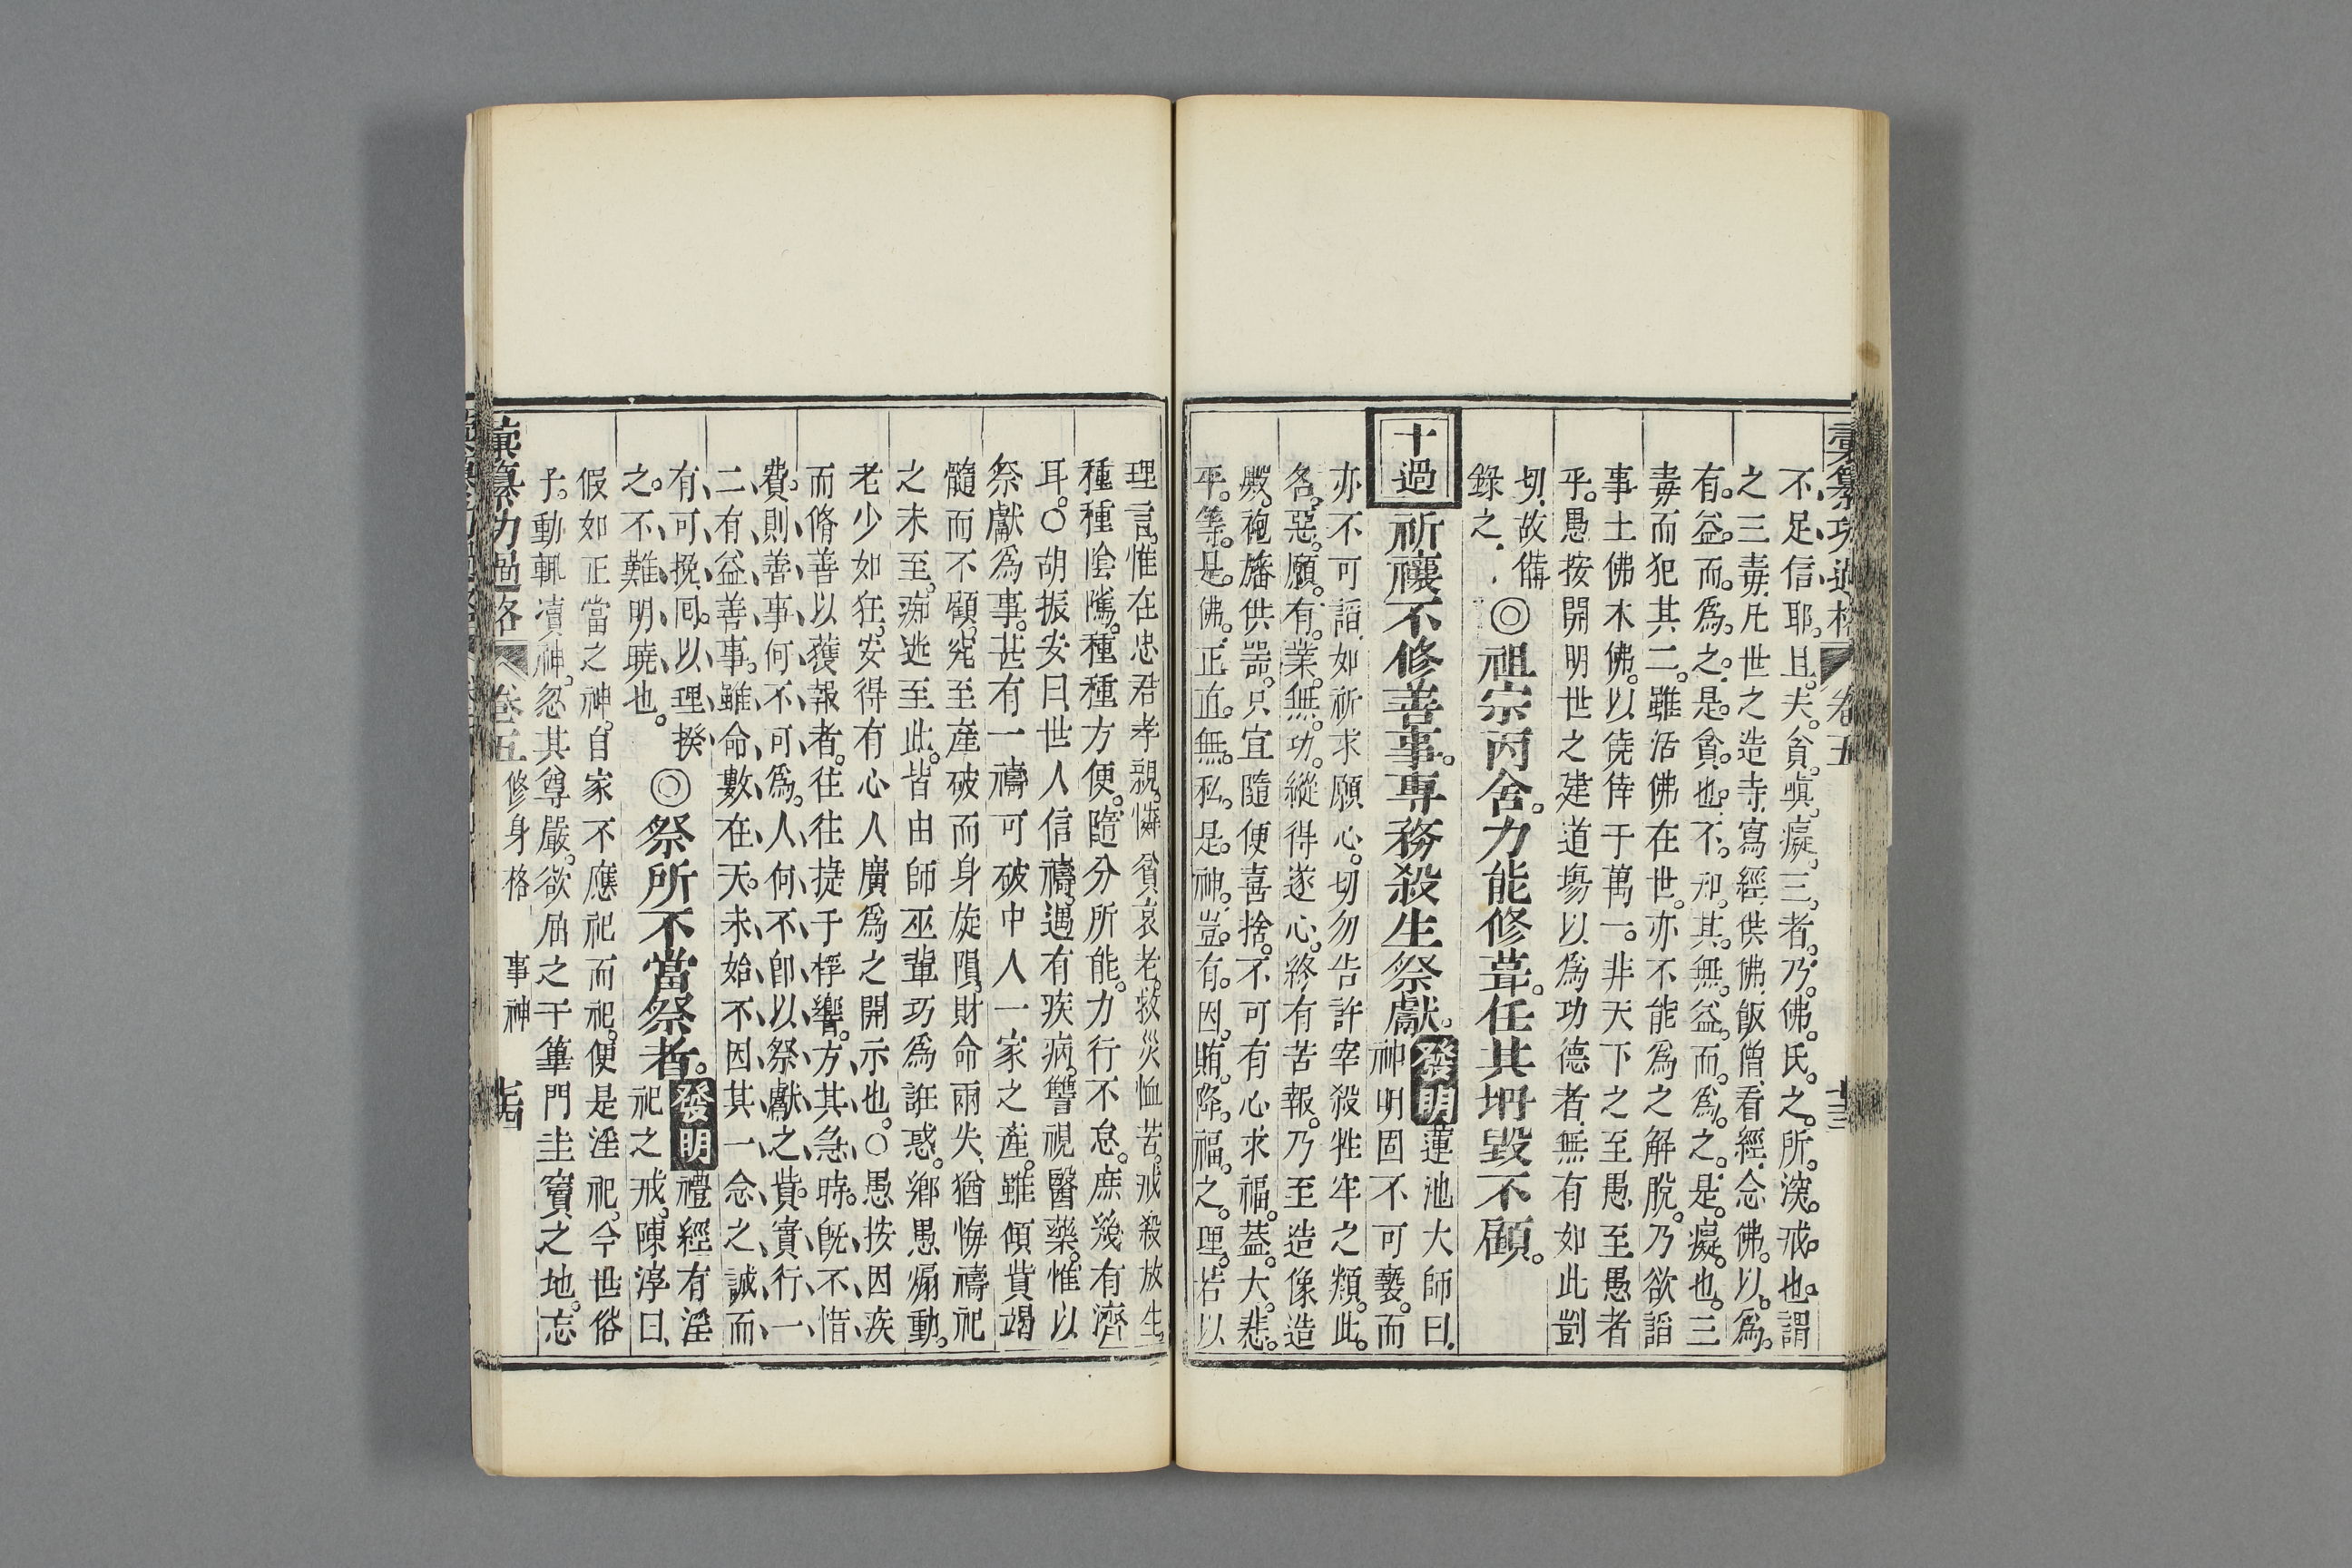 彙纂功過格 卷五 十三
不足信耶。且夫貪。嗔。癡。三者。乃佛氏之所深戒也。謂
之三毒。凡世之造寺。寫經。供佛。飯僧。看經。念佛。以爲。
有益。而爲之。是貪也。不知其無益。而爲之。是癡也。三
毒而犯其二。雖活佛在世。亦不能爲之解脫。乃欲諂
事土佛木佛。以僥倖于萬一。非天下之至愚至愚者
乎。愚按開明世之建道場以爲功德者。無有如此剴
切。故備
錄之。
◎祖宗丙舍。力能修葺。任其坍毀不顧。
十過
祈禳不修善事。專務殺生祭獻。
發明
蓮池大師曰。
神明固不可褻。而
亦不可諂。如祈求願心。切勿告許宰殺牲牢之類。此
名。惡願。有業。無功。縱得遂心。終有苦報。乃至造像造
殿。袍旛供器。只宜隨便喜捨。不可有心求福。蓋大悲。
平等。是佛。正直無私。是神。豈有因賄降福之理。若以
理言。惟在忠君孝親。憐貧哀老。救災恤苦。戒殺放生。
種種陰隲。種種方便。隨分所能。力行不怠。庶幾有濟
耳。○胡振安曰世人信禱。遇有疾病。讐視醫藥。惟以
祭獻爲事。甚有一禱可破中人一家之產。雖傾貲竭
髓而不顧。究至產破而身旋隕。財命兩失。猶悔禱祀
之未至。痴迷至此。皆由師巫輩巧爲誑惑。鄉愚煽動。
老少如狂。安得有心人廣爲之開示也。○愚按因疾
而脩善以獲報者。往往捷于桴響。方其急時。旣不惜
費。則善事何不可爲。人何不卽以祭獻之貲。實行一
二有益善事。雖命數在天。未始不因其一念之誠而
有可挽囘。以理揆
之。不難明曉也。
◎祭所不當祭者。
發明
禮經有淫
祀之戒。陳淳曰
假如正當之神。自家不應祀而祀。便是淫祀。今世俗
子。動輒凟神。忽其尊嚴。欲屈之于篳門圭竇之地。忘
彙纂功過格 卷五 修身格 事神 十四